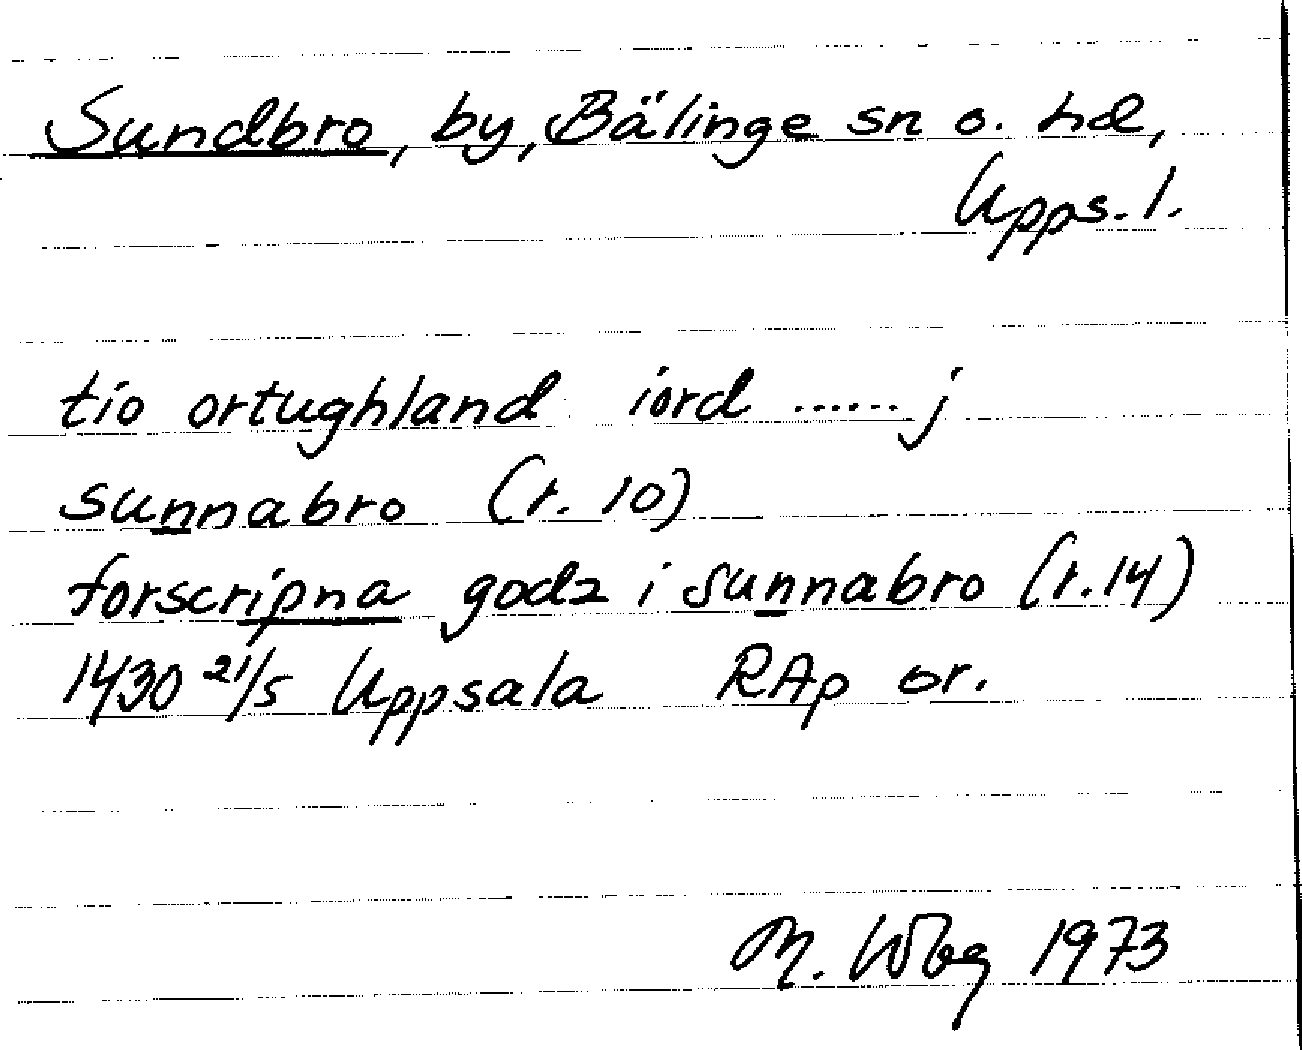 Sundbro, by, Bälinge sn o. hd,
Upps. l.
tio ortughland iord ...... j
sunnabro (r. 10)
forscripna godz i sunnabro (r. 14)
1430 21/5 Uppsala RAp or.
M. Wbg 1973